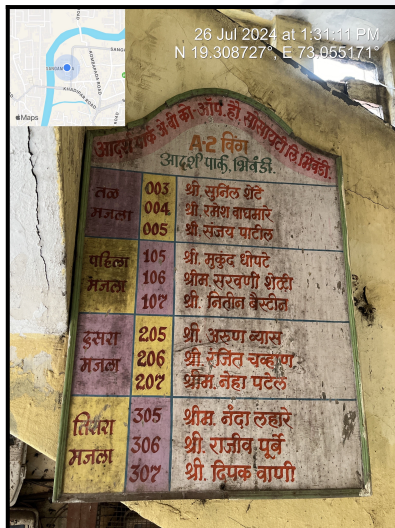 26 Jul 2024 at 1:31:11 PM
N 19.308727°, E 73.055171°
KOMBAPADA ROAD
KHADIPAR ROAD
Maps
आदर्श पार्क जे बी को. ऑप. हौ. सोसायटी लि. भिवंडी.
A-2 विंग
आदर्श पार्क, भिवंडी.
तळ मजला
003 श्री. सुनिल शेटे
004 श्री. रमेश वाघमारे
005 श्री. संजय पाटील
पहिला मजला
105 श्री. मुकुंद धोपटे
106 श्रीम. सरवणी शेळी
107 श्री. नितीन बैस्टीन
दुसरा मजला
205 श्री. अरुण व्यास
206 श्री. रंजित चव्हाण
207 श्रीम. नेहा पटेल
तिसरा मजला
305 श्रीम. नंदा लहारे
306 श्री. राजीव पूर्बे
307 श्री. दिपक वाणी